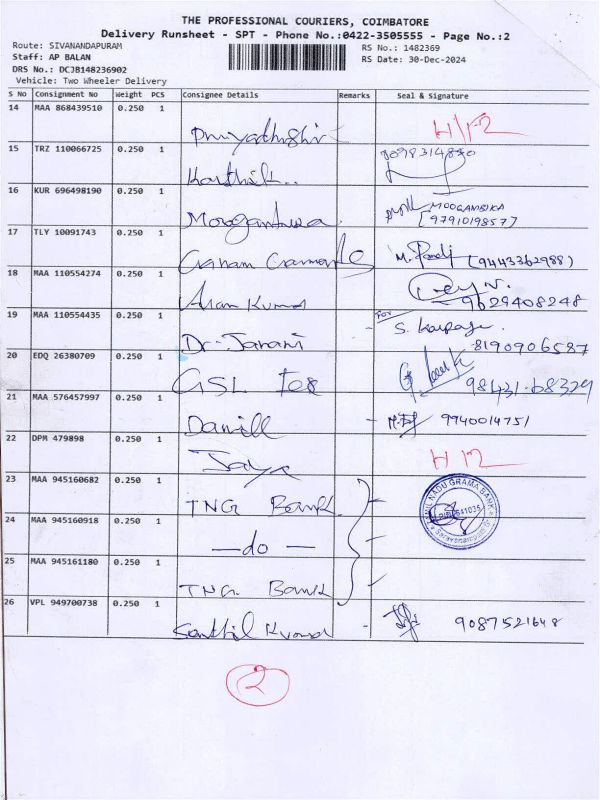 THE PROFESSIONAL COURIERS, COIMBATORE
Delivery Runsheet - SPT - Phone No.:0422-3505555 - Page No.:2
Route: SIVANANDAPURAM
Staff: AP BALAN
DRS No.: DCJB148236902
Vehicle: Two Wheeler Delivery
RS No.: 1482369
RS Date: 30-Dec-2024
S No Consignment No Weight PCS Consignee Details Remarks Seal & Signature
14 MAA 868439510 0.250 1
15 TRZ 110066725 0.250 1 Karthik..
16 KUR 696498190 0.250 1 MOOGAMBIKA
(9791019857)
17 TLY 10091743 0.250 1 (9443362988)
18 MAA 110554274 0.250 1 Arun Kumar 9629408248
19 MAA 110554435 0.250 1 Dr. Janani For S. 8190906587
20 EDQ 26380709 0.250 1 GSL Tex 98431-68329
21 MAA 576457997 0.250 1 Danill 9940014751
22 DPM 479898 0.250 1 Jaya
23 MAA 945160682 0.250 1 TNG Bank
24 MAA 945160918 0.250 1 — do —
25 MAA 945161180 0.250 1 TNG Bank
TAMIL NADU GRAMA BANK
26 VPL 949700738 0.250 1 Senthil Kumar 9087521648
2